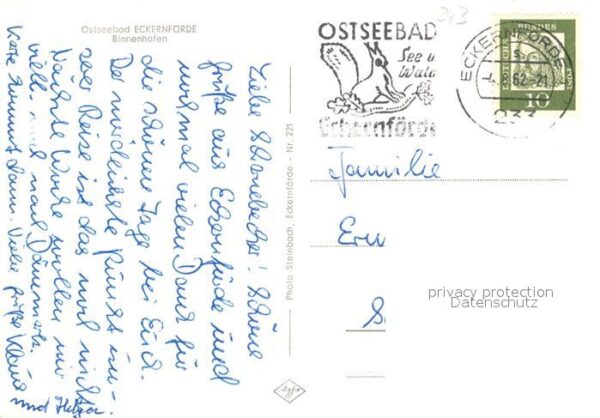 Ostseebad ECKERNFÖRDE
Binnenhafen
Liebe Schönebecker! Schöne
Grüße aus Eckernförde und
nochmal vielen Dank für
die schönen Tage bei Euch.
Der nördlichste Punkt un-
serer Reise ist das noch nicht.
Nächste Woche wollen wir
viell. noch nach Dänemark.
Karte kommt dann. Viele Grüße Klaus
und
Photo Steinbach, Eckernförde - Nr. 221
313
OSTSEEBAD
See u
Wald
Eckernförde
ECKERNFÖRDE
-4.8.62-21
233
DEUTSCHE BUNDESPOST
10
Familie
Erw
S
privacy protection
Datenschutz